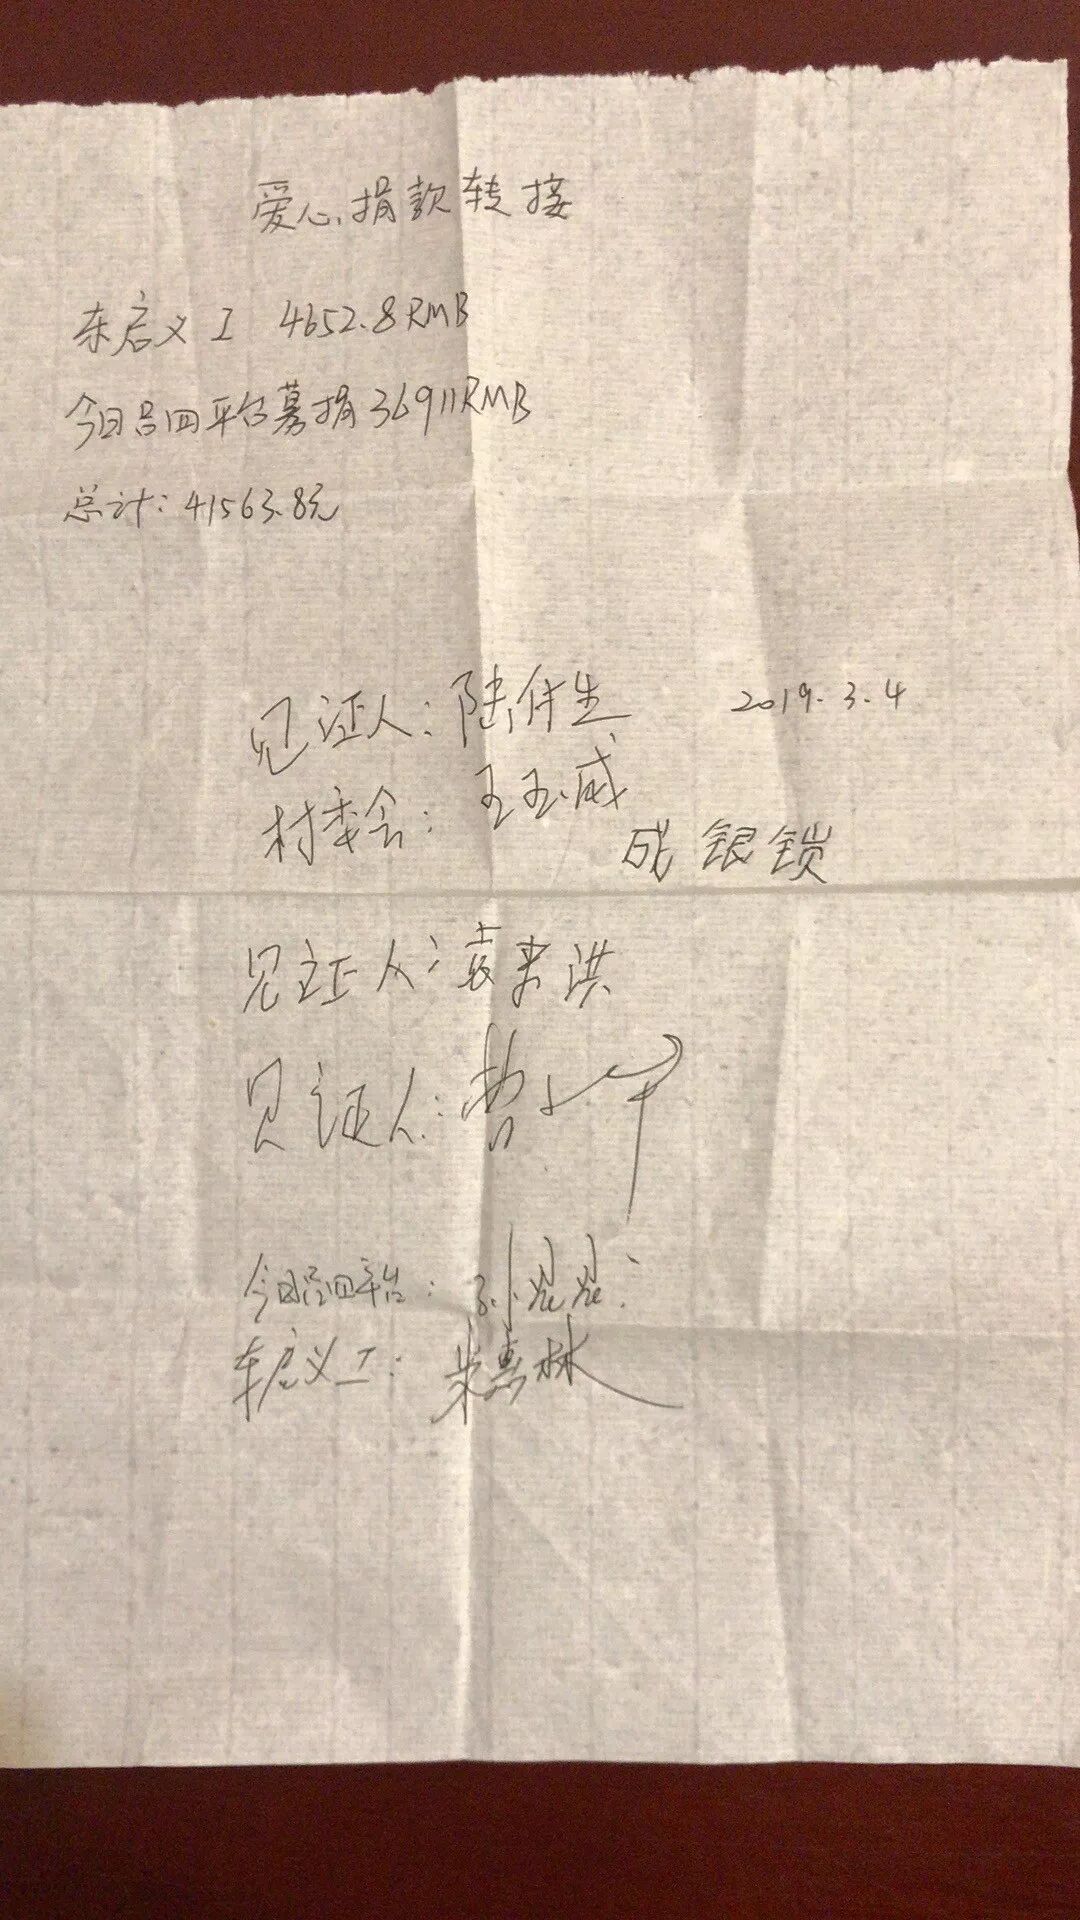 爱心捐款转接
东启义工 4652.8RMB
今日吕四平台募捐36911RMB
总计：41563.8元
见证人：陆件生
2019.3.4
村委会：王玉成
成银锁
见证人：袁来洪
见证人：曹
今日吕四平台：孙焜焜
东启义工：朱惠林